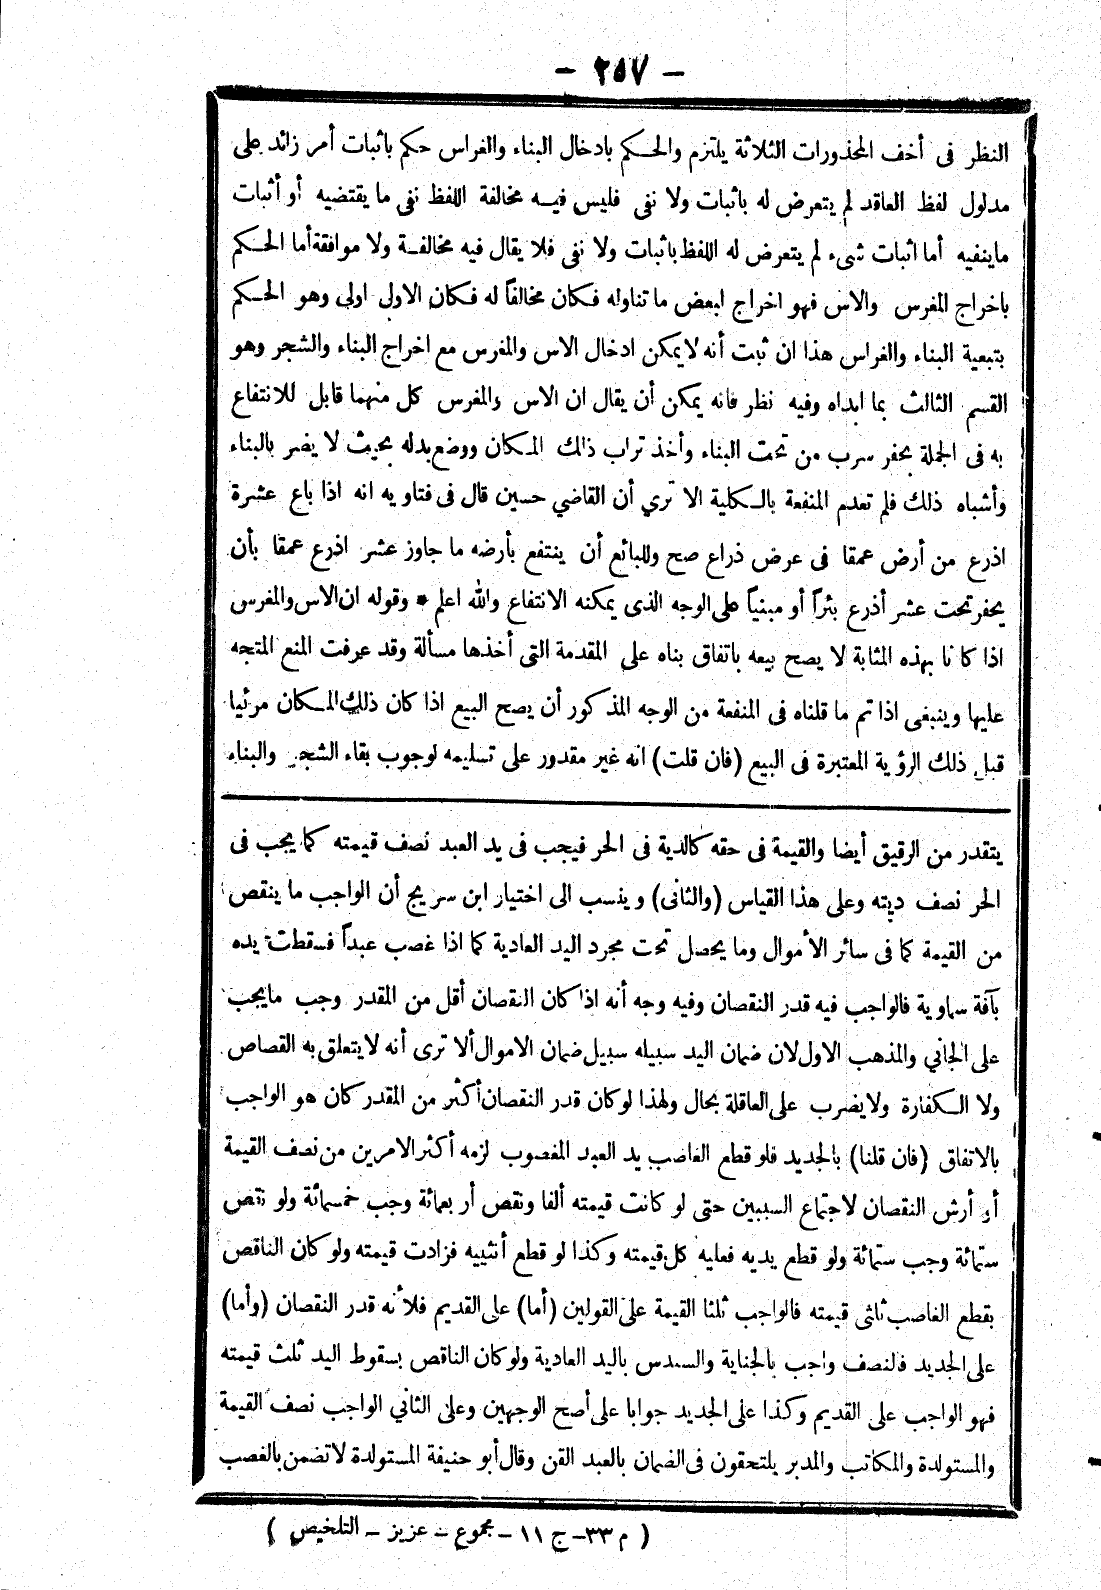 - ٢٥٧ -
النظر فى أخف المحذورات الثلاثة يلتزم والحكم بادخال البناء والغراس حكم باثبات أمر زائد على
مدلول لفظ العاقد لم يتعرض له باثبات ولا نفى فليس فيه مخالفة اللفظ نفى ما يقتضيه أو أثبات
ماينفيه أما اثبات شىء لم يتعرض له اللفظ باثبات ولا نفى فلا يقال فيه مخالفة ولا موافقة أما الحكم
باخراج المغرس والاس فهو اخراج لبعض ما تناوله فكان مخالفاً له فكان الاول اولى وهو الحكم
بتبعية البناء والغراس هذا ان ثبت أنه لا يمكن ادخال الاس والمغرس مع اخراج البناء والشجر وهو
القسم الثالث بما ابداه وفيه نظر فانه يمكن أن يقال ان الاس والمغرس كل منهما قابل للانتفاع
به فى الجملة بحفر سرب من تحت البناء وأخذ تراب ذلك المكان ووضع بدله بحيث لا يضر بالبناء
وأشباه ذلك فلم تعدم المنفعة بالكلية الا تري أن القاضي حسين قال فى فتاويه انه اذا باع عشرة
اذرع من أرض عمقا فى عرض ذراع صح وللبائع أن ينتفع بأرضه ما جاوز عشر اذرع عمقا بأن
يحفر تحت عشر أذرع بئراً أو مبنياً على الوجه الذى يمكنه الانتفاع والله اعلم * وقوله ان الاس والمغرس
اذا كانا بهذه المثابة لا يصح بيعه باتفاق بناه على المقدمة التى أخذها مسألة وقد عرفت المنع المتجه
عليها وينبغى اذا تم ما قلناه فى المنفعة من الوجه المذكور أن يصح البيع اذا كان ذلك المكان مرئيا
قبل ذلك الرؤية المعتبرة فى البيع (فان قلت) انه غير مقدور على تسليمه لوجوب بقاء الشجر والبناء
يتقدر من الرقيق أيضا والقيمة فى حقه كالدية فى الحر فيجب فى يد العبد نصف قيمته كما يجب فى
الحر نصف ديته وعلى هذا القياس (والثانى) وينسب الى اختيار ابن سريج أن الواجب ما ينقص
من القيمة كما فى سائر الأموال وما يحصل تحت مجرد اليد العادية كما اذا غصب عبداً فسقطت يده
بآفة سماوية فالواجب فيه قدر النقصان وفيه وجه أنه اذا كان النقصان أقل من المقدر وجب مايجب
على الجاني والمذهب الاول لان ضمان اليد سبيله سبيل ضمان الاموال ألا ترى أنه لا يتعلق به القصاص
ولا الكفارة ولا يضرب على العاقلة بحال ولهذا لو كان قدر النقصان أكثر من المقدر كان هو الواجب
بالاتفاق (فان قلنا) بالجديد فلو قطع الغاصب يد العبد المغصوب لزمه أكثر الامرين من نصف القيمة
أو أرش النقصان لاجتماع السببين حتى لو كانت قيمته ألفا ونقص أربعمائة وجب خمسمائة ولو نقص
ستمائة وجب ستمائة ولو قطع يديه فعليه كل قيمته وكذا لو قطع أنثييه فزادت قيمته ولو كان الناقص
بقطع الغاصب ثلثى قيمته فالواجب ثلثا القيمة على القولين (أما) على القديم فلأنه قدر النقصان (وأما)
على الجديد فالنصف واجب بالجناية والسدس باليد العادية ولو كان الناقص بسقوط اليد ثلث قيمته
فهو الواجب على القديم وكذا على الجديد جوابا على أصح الوجهين وعلى الثاني الواجب نصف القيمة
والمستولدة والمكاتب والمدبر يلتحقون فى الضمان بالعبد القن وقال أبو حنيفة المستولدة لا تضمن بالغصب
( م ٣٣ - ج ١١ - مجموع - عزيز - التلخيص )